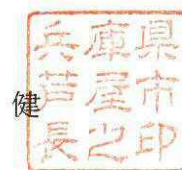 健
兵庫県
芦屋市
長之印